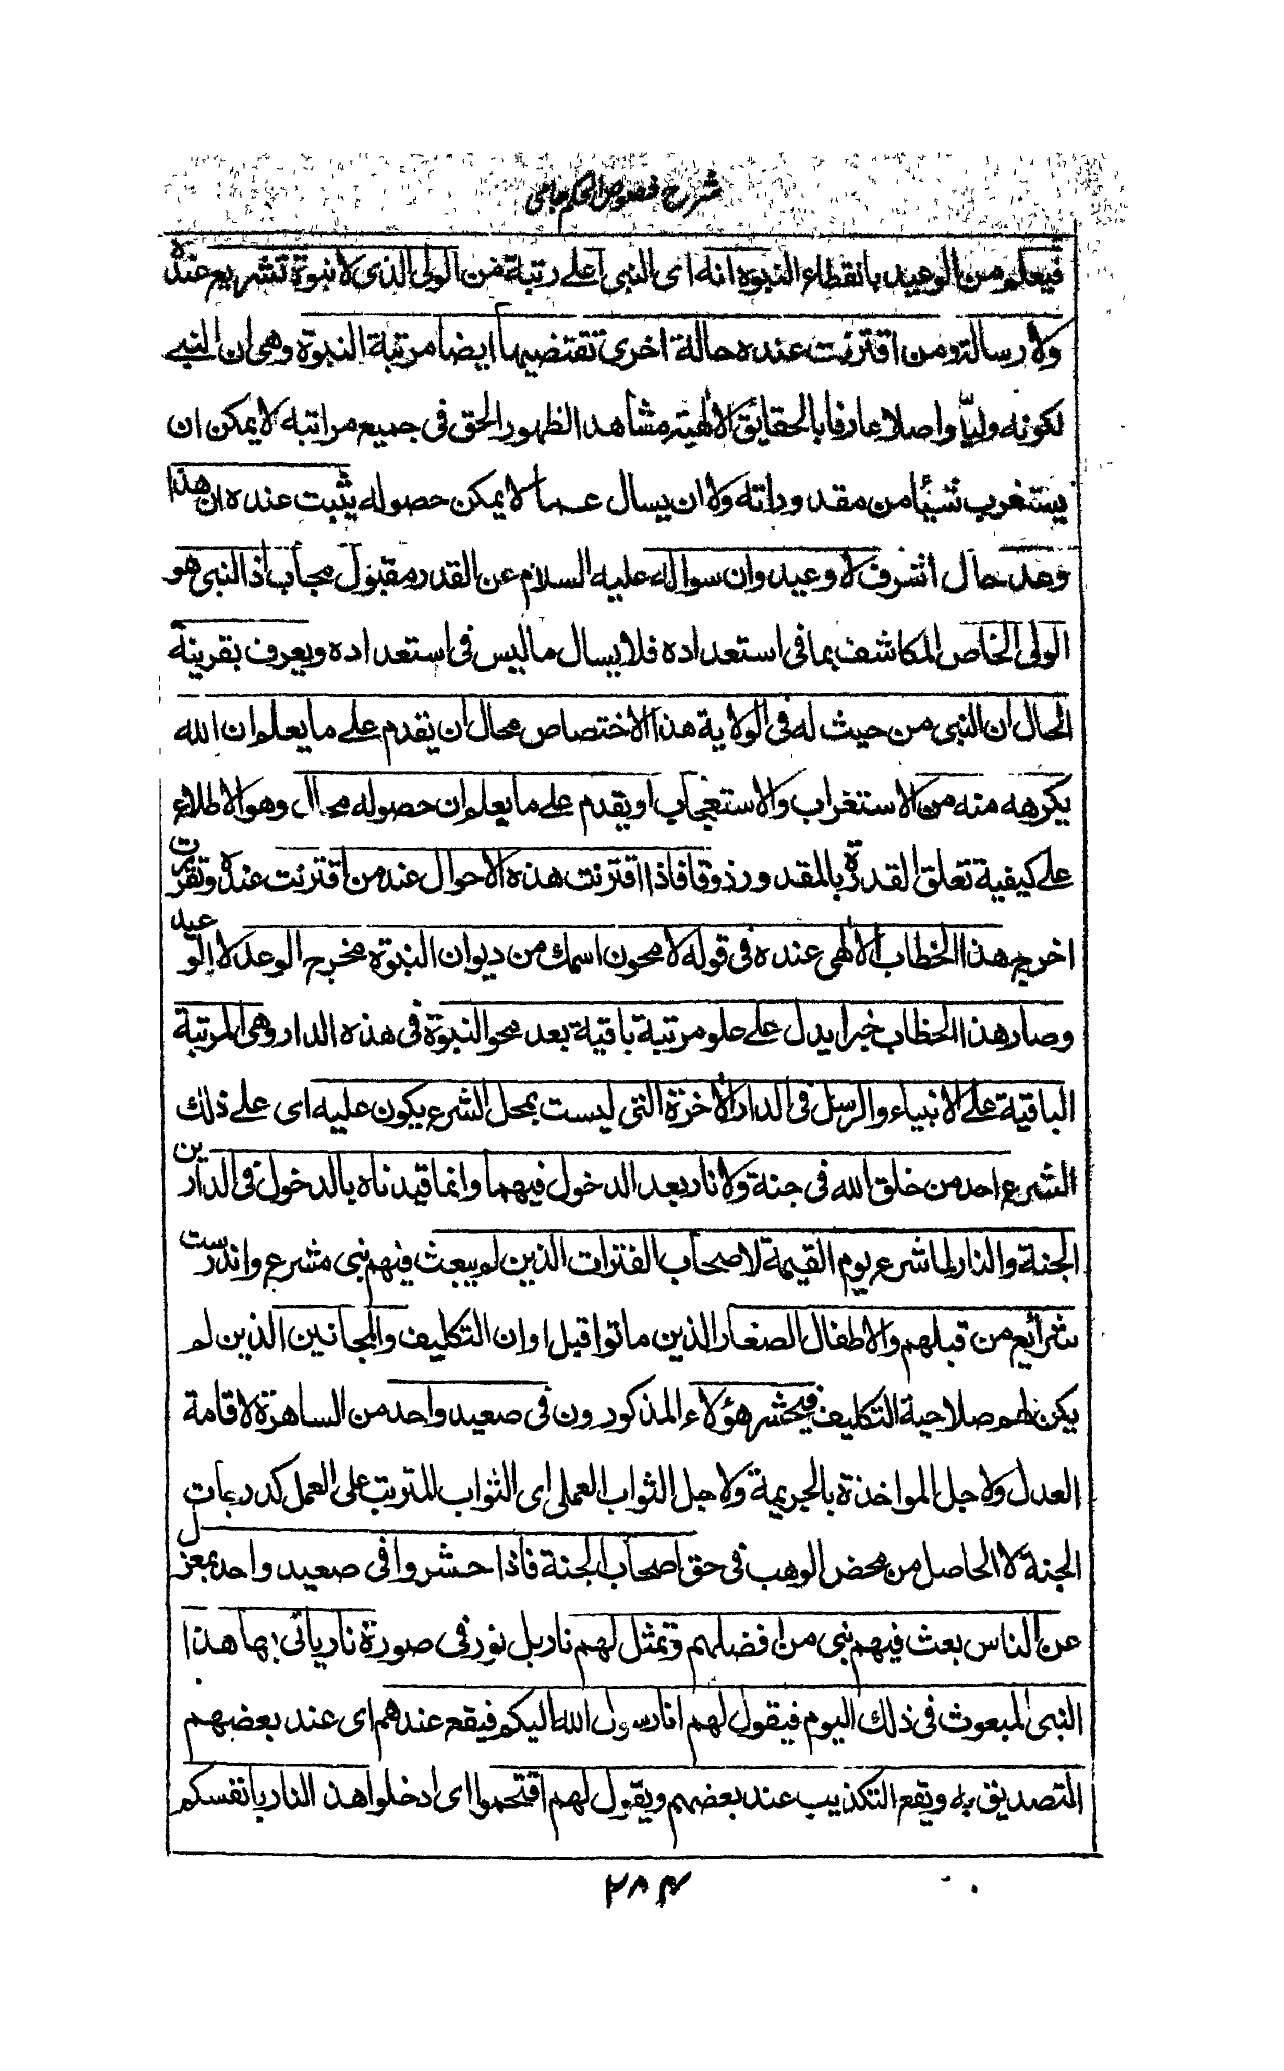 شرح فصوص الحكم جامى
فيعلم من الوعيد بانقطاع النبوة انه اى النبى اعلى رتبة من الولى الذى لا نبوة تشريع عنده
ولا رسالة ومن اقترنت عنده حالة اخرى تقتضيها ايضا مرتبة النبوة وهى ان النبى
لكونه وليّا واصلا عارفا بالحقايق الالهية مشاهدا لظهور الحق فى جميع مراتبه لا يمكن ان
يستغرب شيئا من مقدوراته ولا ان يسال عما لا يمكن حصوله يثبت عنده ان هذا
وعد حال اشرف لا وعيد وان سواله عليه السلام عن القدر مقبول مجاب اذ النبى هو
الولى الخاص المكاشف بما فى استعداده فلا يسال ما ليس فى استعداده ويعرف بقرينة
الحال ان النبى من حيث له فى الولاية هذا الاختصاص محال ان يقدم على ما يعلم ان الله
يكرهه منه من الاستغراب والاستعجاب او يقدم على ما يعلم ان حصوله محال وهو الاطلاع
على كيفية تعلق القدرة بالمقدور ذوقا فاذا اقترنت هذه الاحوال عند من اقترنت عنده وتقررت
اخرج هذا الخطاب الالهى عنده فى قوله لا محون اسمك من ديوان النبوة مخرج الوعد لا الوعيد
وصار هذا الخطاب خبرا يدل على علو مرتبة باقية بعد محو النبوة فى هذه الدار وهى المرتبة
الباقية على الانبياء والرسل فى الدار الاخرة التى ليست بمحل الشرع يكون عليه اى على ذلك
الشرع احد من خلق الله فى جنة ولا نار بعد الدخول فيهما وانما قيدناه بالدخول فى الدارين
الجنة والنار لما شرع يوم القيمة لاصحاب الفترات الذين لم يبعث فيهم نبى مشرع واندرست
شرائع من قبلهم والاطفال الصغار الذين ماتوا قبل اوان التكليف والمجانين الذين لم
يكن لهم صلاحية التكليف فيحشر هؤلاء المذكورون فى صعيد واحد من الساهرة لاقامة
العدل ولاجل المواخذة بالجريمة ولاجل الثواب العملى اى الثواب المترتب على العمل كدرجات
الجنة لا الحاصل من محض الوهب فى حق اصحاب الجنة فاذا حشروا فى صعيد واحد بمعزل
عن الناس بعث فيهم نبى من افضلهم وتمثل لهم نار بل نور فى صورة نار ياتى بها هذا
النبى المبعوث فى ذلك اليوم فيقول لهم انا رسول الله اليكم فيقع عندهم اى عند بعضهم
التصديق به ويقع التكذيب عند بعضهم ويقول لهم اقتحموا اى ادخلوا هذ النار بانفسكم
۲۸۴